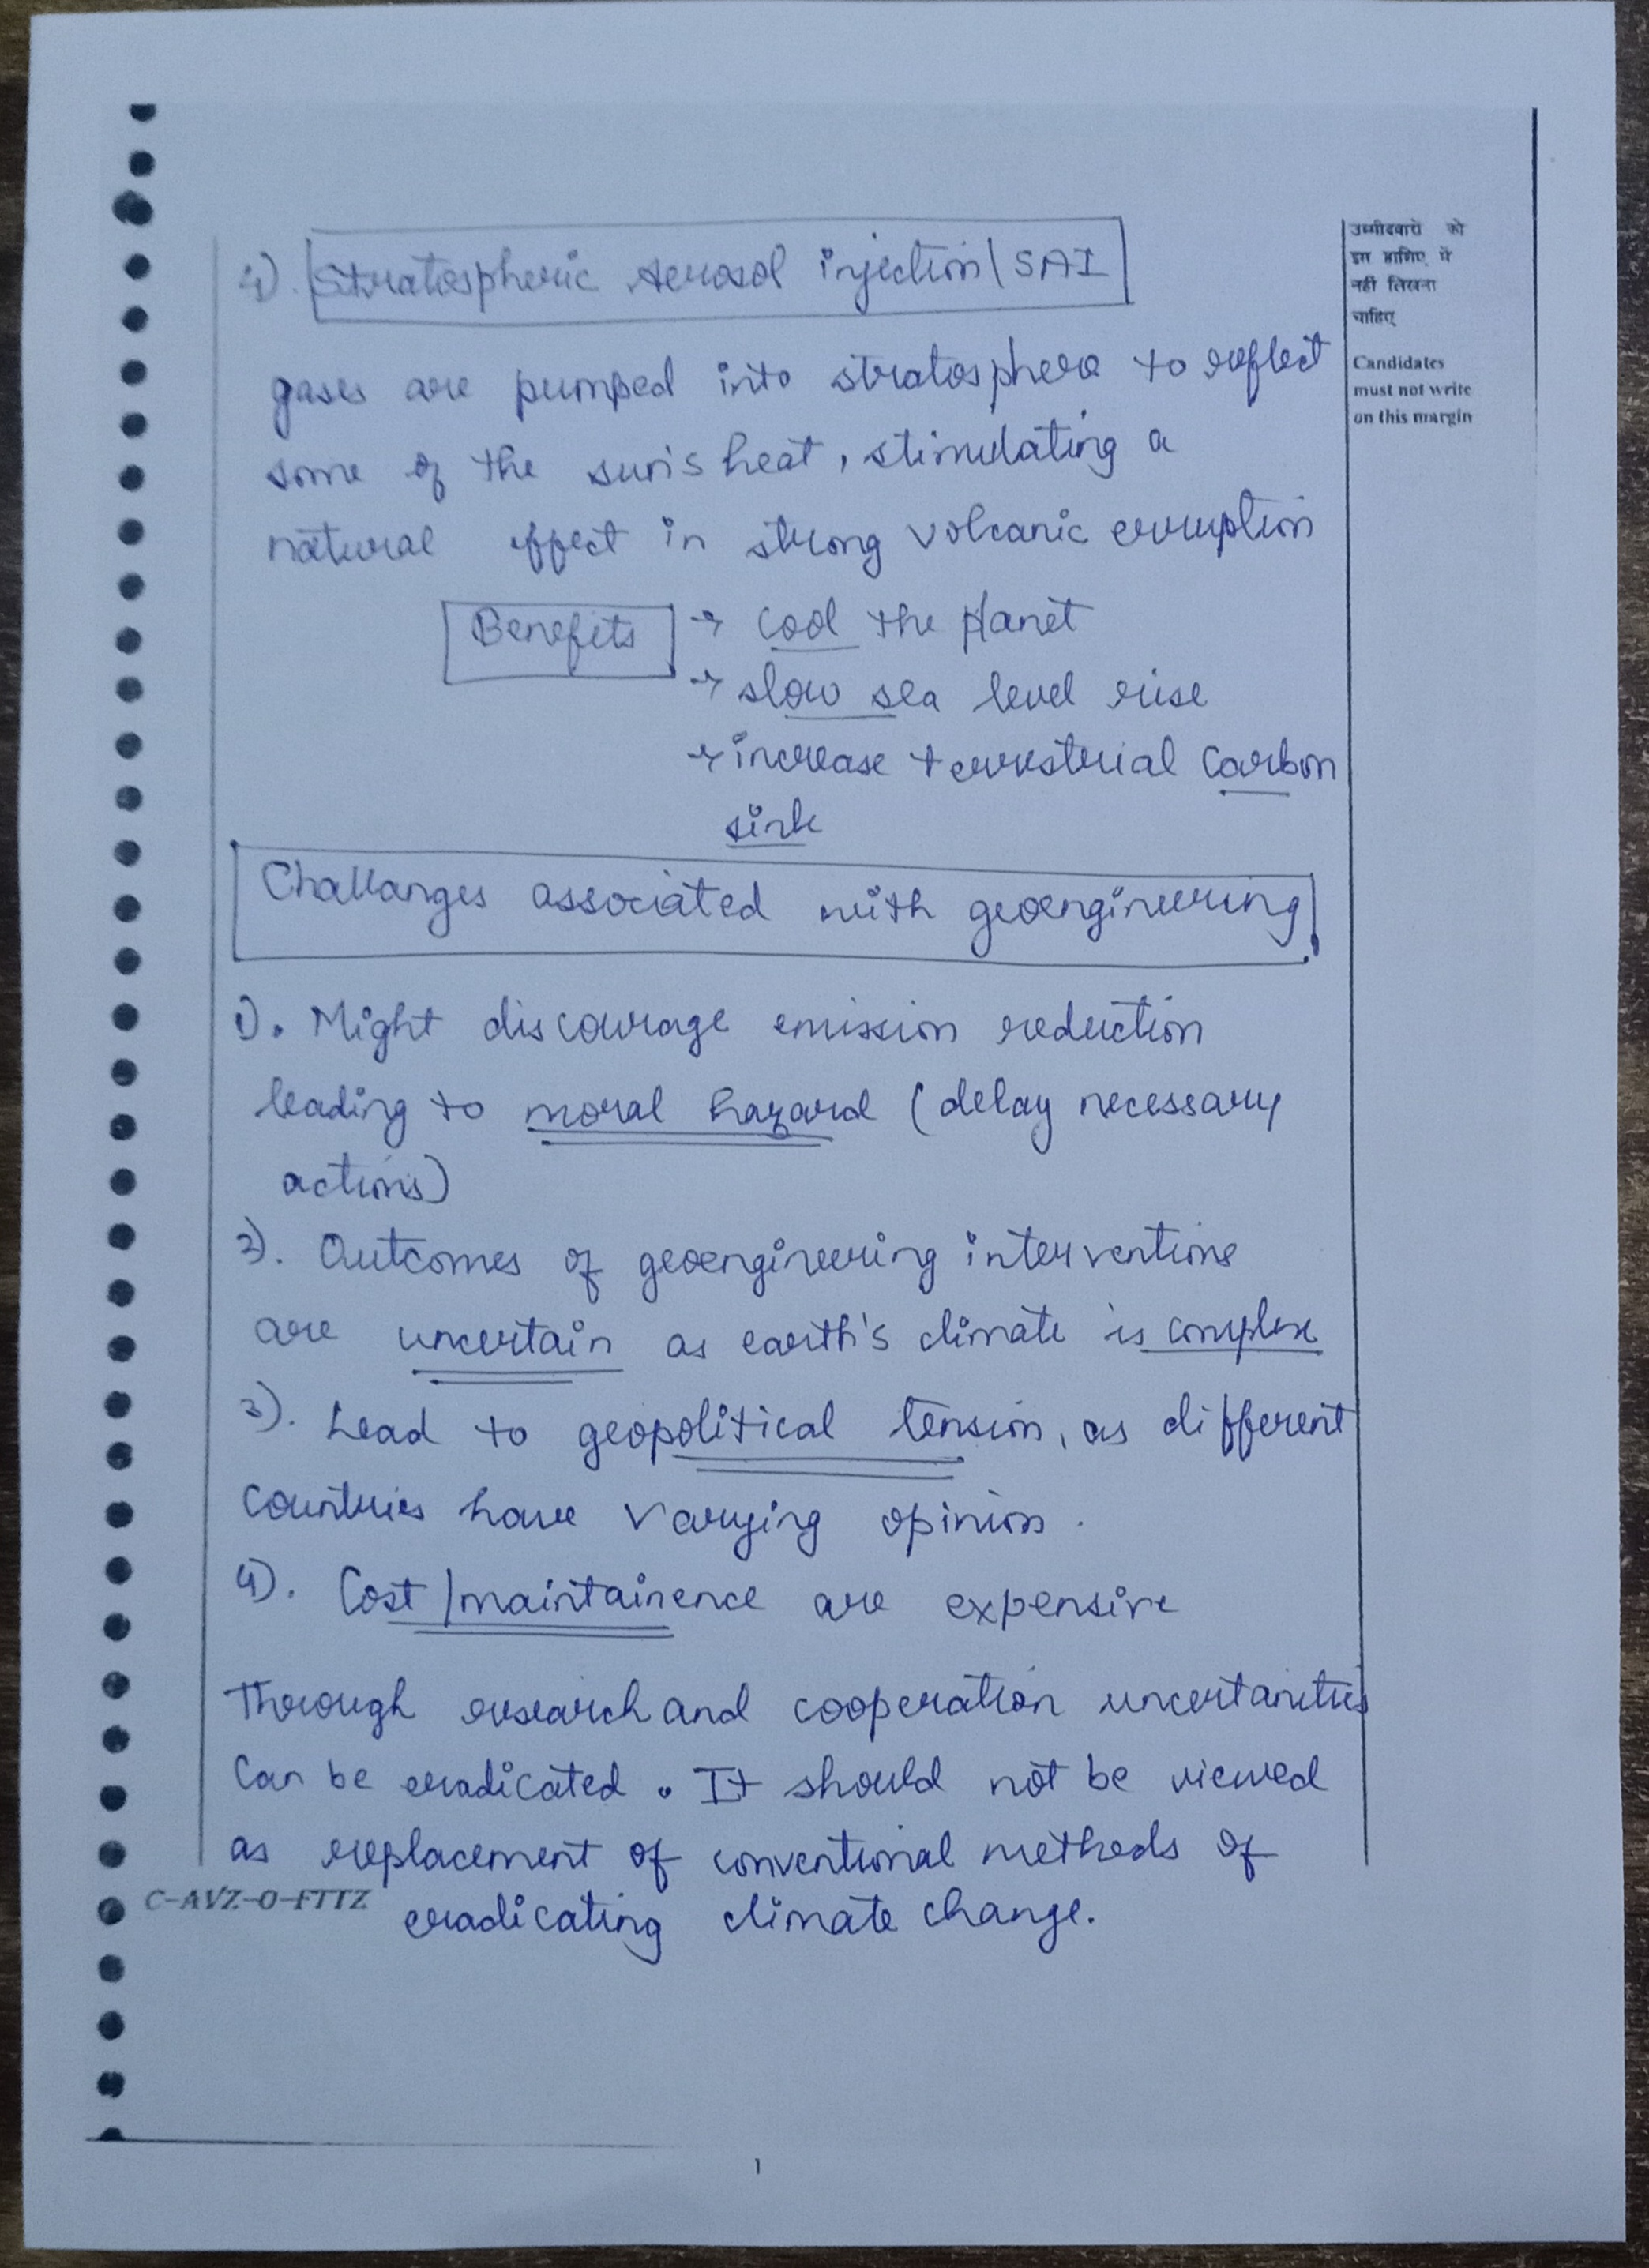 4). Stratospheric Aerosol injection/SAI
gases are pumped into stratosphere to reflect
some of the sun's heat, stimulating a
natural effect in strong volcanic erruption
Benefits → cool the planet
→ slow sea level rise
→ increase terrestrial carbon
sink
Challanges associated with geoengineering
1). Might discourage emission reduction
leading to moral hazard (delay necessary
actions)
2). Outcomes of geoengineering interventions
are uncertain as earth's climate is complex
3). Lead to geopolitical tension, as different
countries have varying opinion.
4). Cost/maintainence are expensive
Through research and cooperation uncertanities
can be eradicated. It should not be viewed
as replacement of conventional methods of
eradicating climate change.
उम्मीदवारों को
इस हाशिए में
नहीं लिखना
चाहिए
Candidates
must not write
on this margin
C-AVZ-O-FTTZ
1